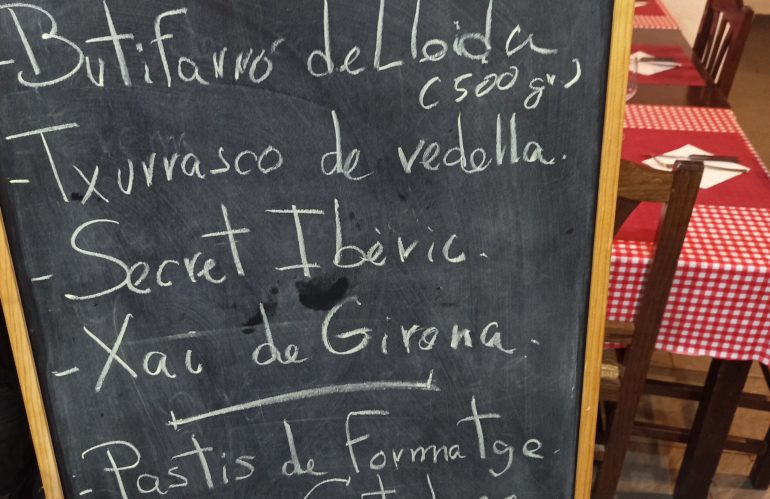 -Butifarró de Lloida
(500 gr)
-Txurrasco de vedella.
-Secret Ibèric.
-Xai de Girona.
-Pastis de Formatge.